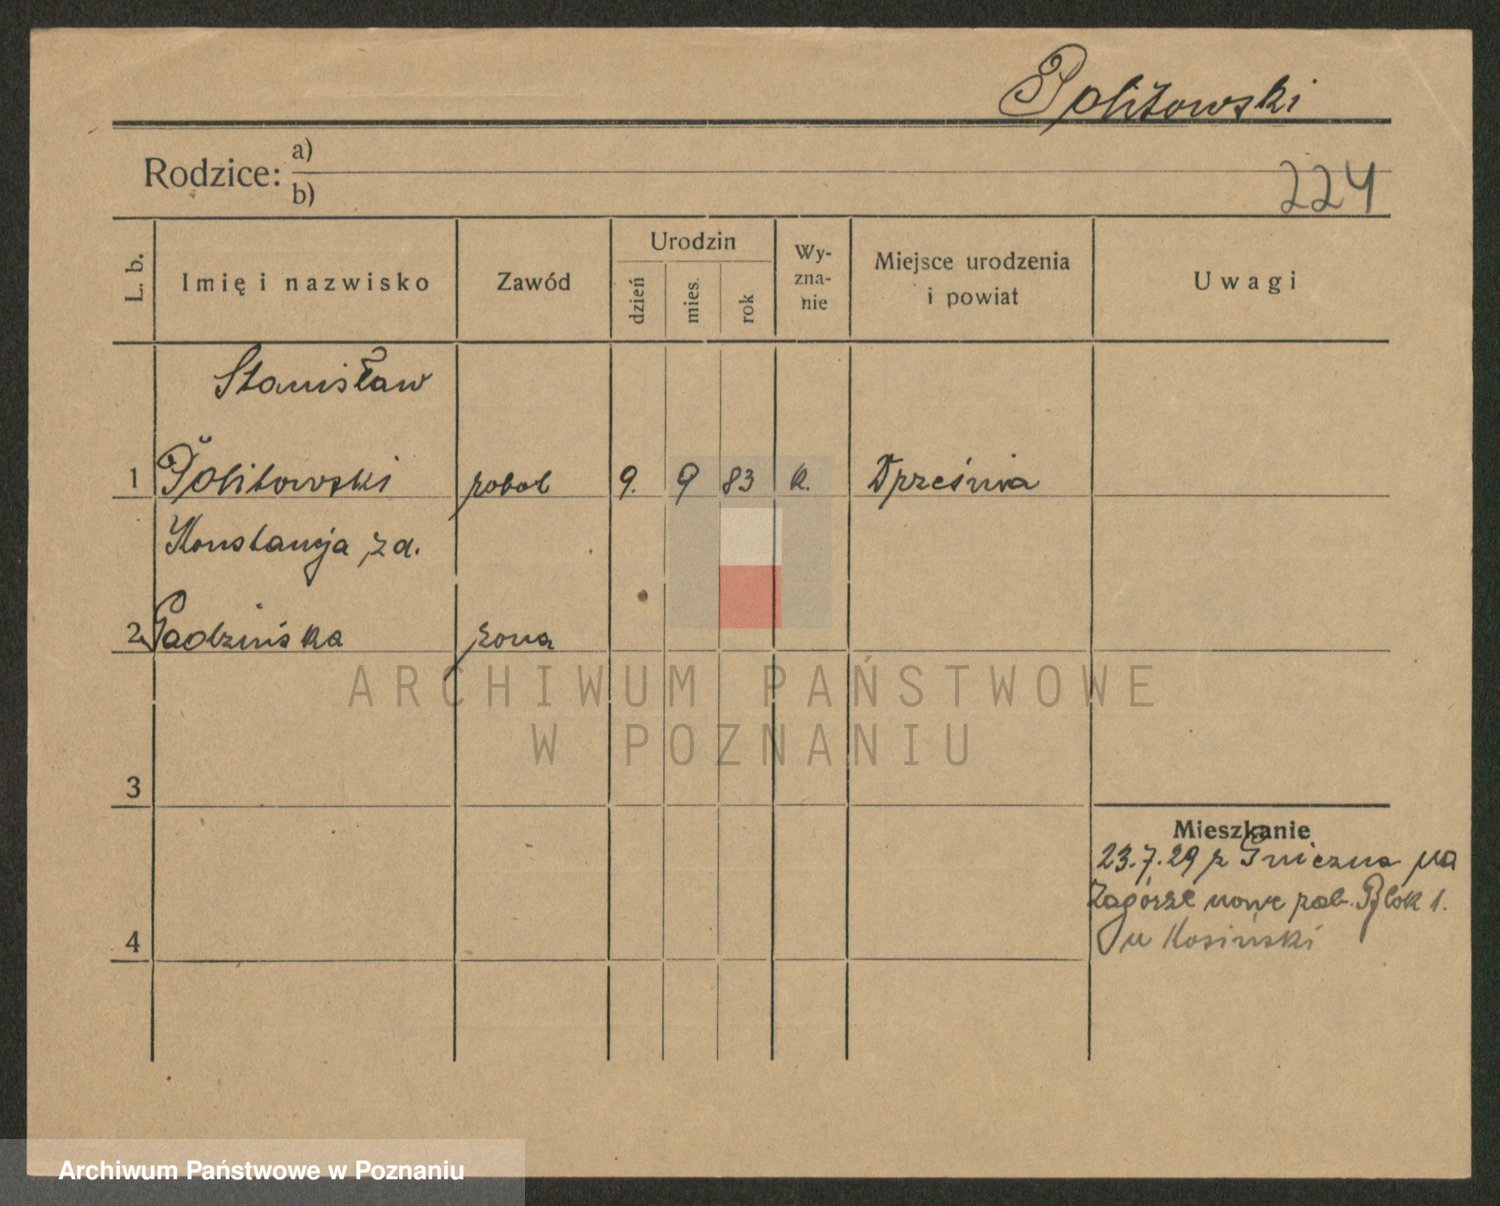 Politowski
Rodzice: a)
b)
224
L. b. Imię i nazwisko Zawód Urodzin dzień mies. rok Wy-zna-nie Miejsce urodzenia i powiat Uwagi
Stanisław
1 Politowski robot 9. 9 83 k.
Konstancja z d.
2 żona
3
4
Mieszkanie
23.7.29 z Gniezna na
Zagórze nowe Blok 1.
u Kosiński
ARCHIWUM PAŃSTWOWE
W POZNANIU
Archiwum Państwowe w Poznaniu